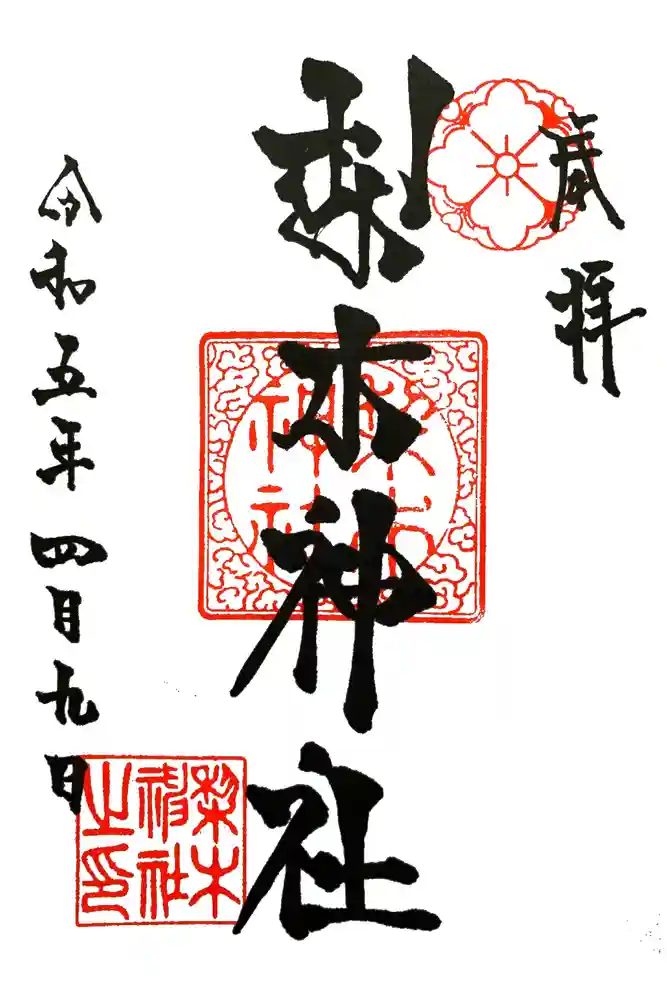 拝
梨木神社
梨木
神社
令和五年四月九日
梨木
神社
之印